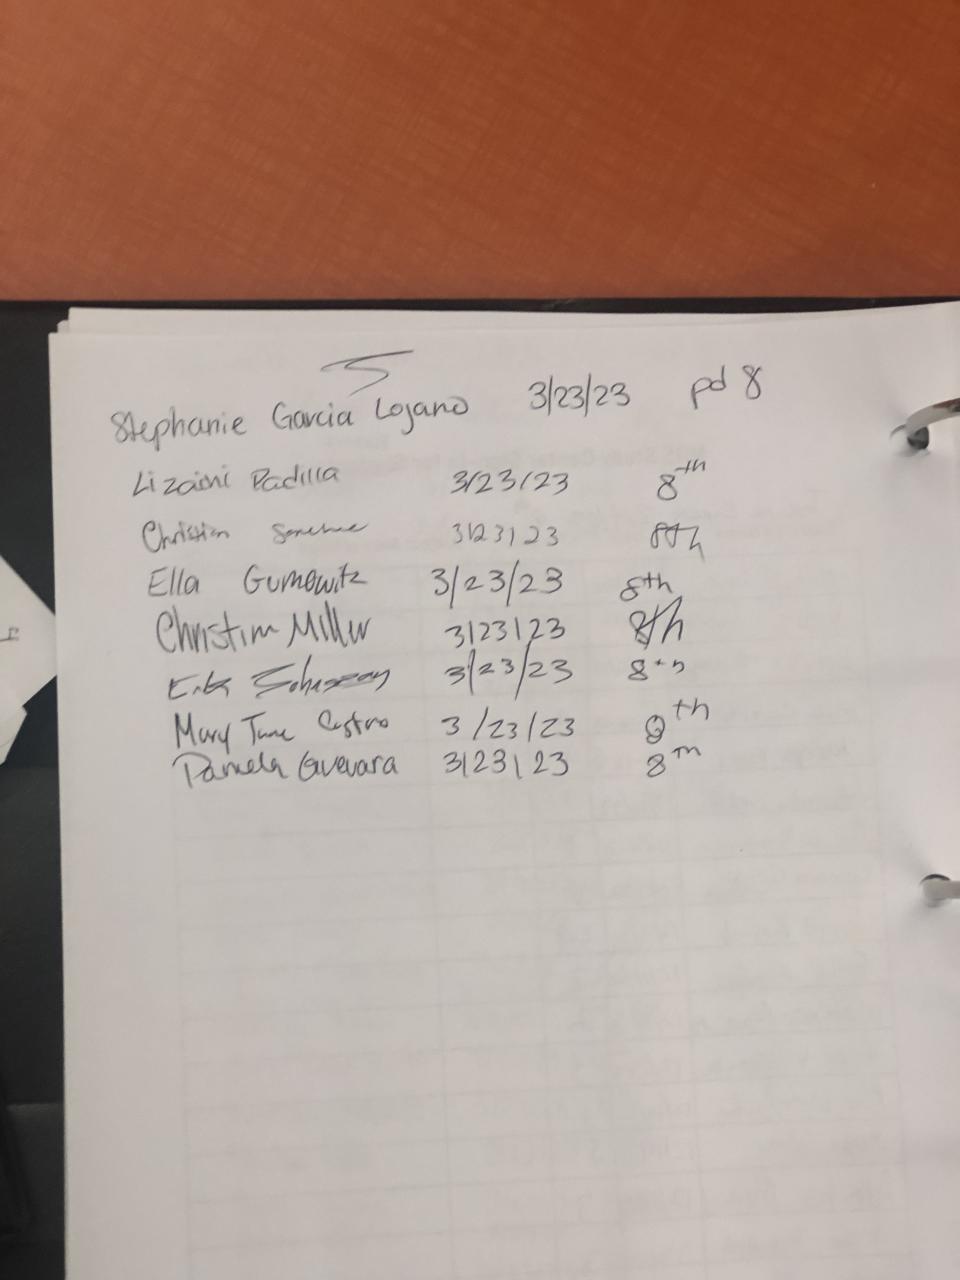 Stephanie Garcia Lozano 3/23/23 pd 8
Lizaini Padilla 3/23/23 8th
Christian 3/23/23 8th
Ella Gurnowitz 3/23/23 8th
Christian Miller 3/23/23 8th
Erik 3/23/23 8th
Mary Jane Castro 3/23/23 8th
Pamela Guevara 3/23/23 8th